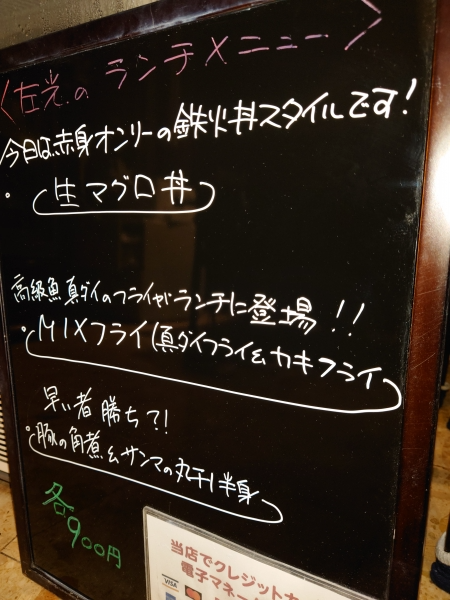 〈左光のランチメニュー〉
今日は赤身オンリーの鉄火丼スタイルです!
・生マグロ丼
高級魚真ダイのフライがランチに登場!!
・MIXフライ(真ダイフライ&カキフライ
早い者勝ち?!
・豚の角煮&サンマの丸干し半身
各900円
当店でクレジットカ
電子マネー
VISA